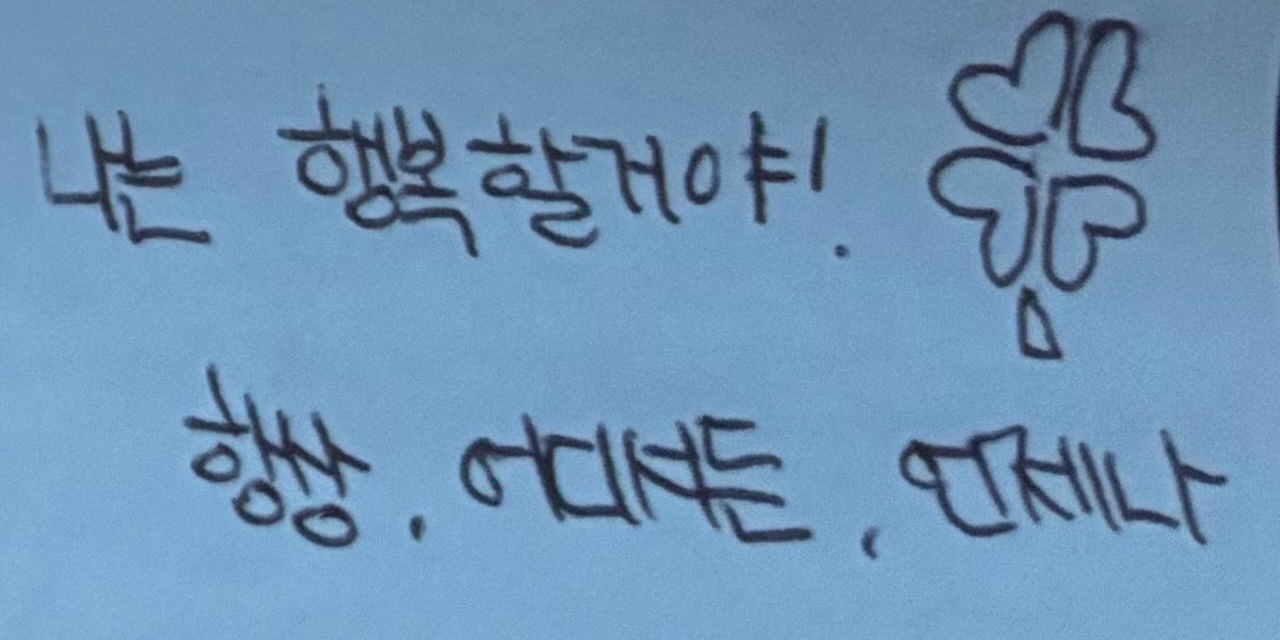 나는 행복할거야!
항상, 어디서든, 언제나